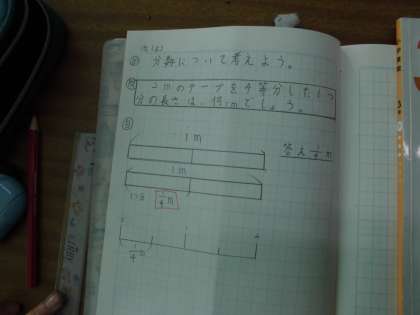 分数について考えよう。
2mのテープを4等分した1つ
分の長さは、何mでしょう。
1m
答え 1/2 m
1m
1つ分 1/4 m
1/4 m